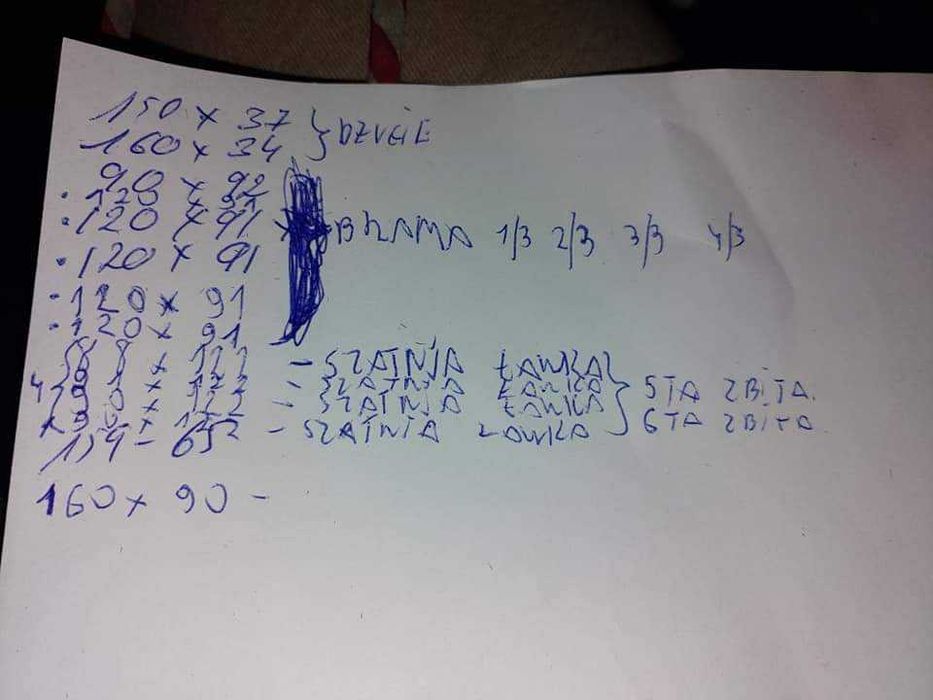 150 x 37 } DZVCIE
160 x 34
90 x 92
. 120 x 91
. 120 x 91 BRAMA 1/3 2/3 3/3 4/3
. 120 x 91
. 120 x 91
. 120 x 91
x 122 - SZATNIA ŁAWKA
x 122 - SZATNIA ŁAWKA } 5TA ZBITA.
x 122 - SZATNIA ŁAWKA
- SZATNIA ŁAWKA 6TA ZBITA
134 - 652
160 x 90 -